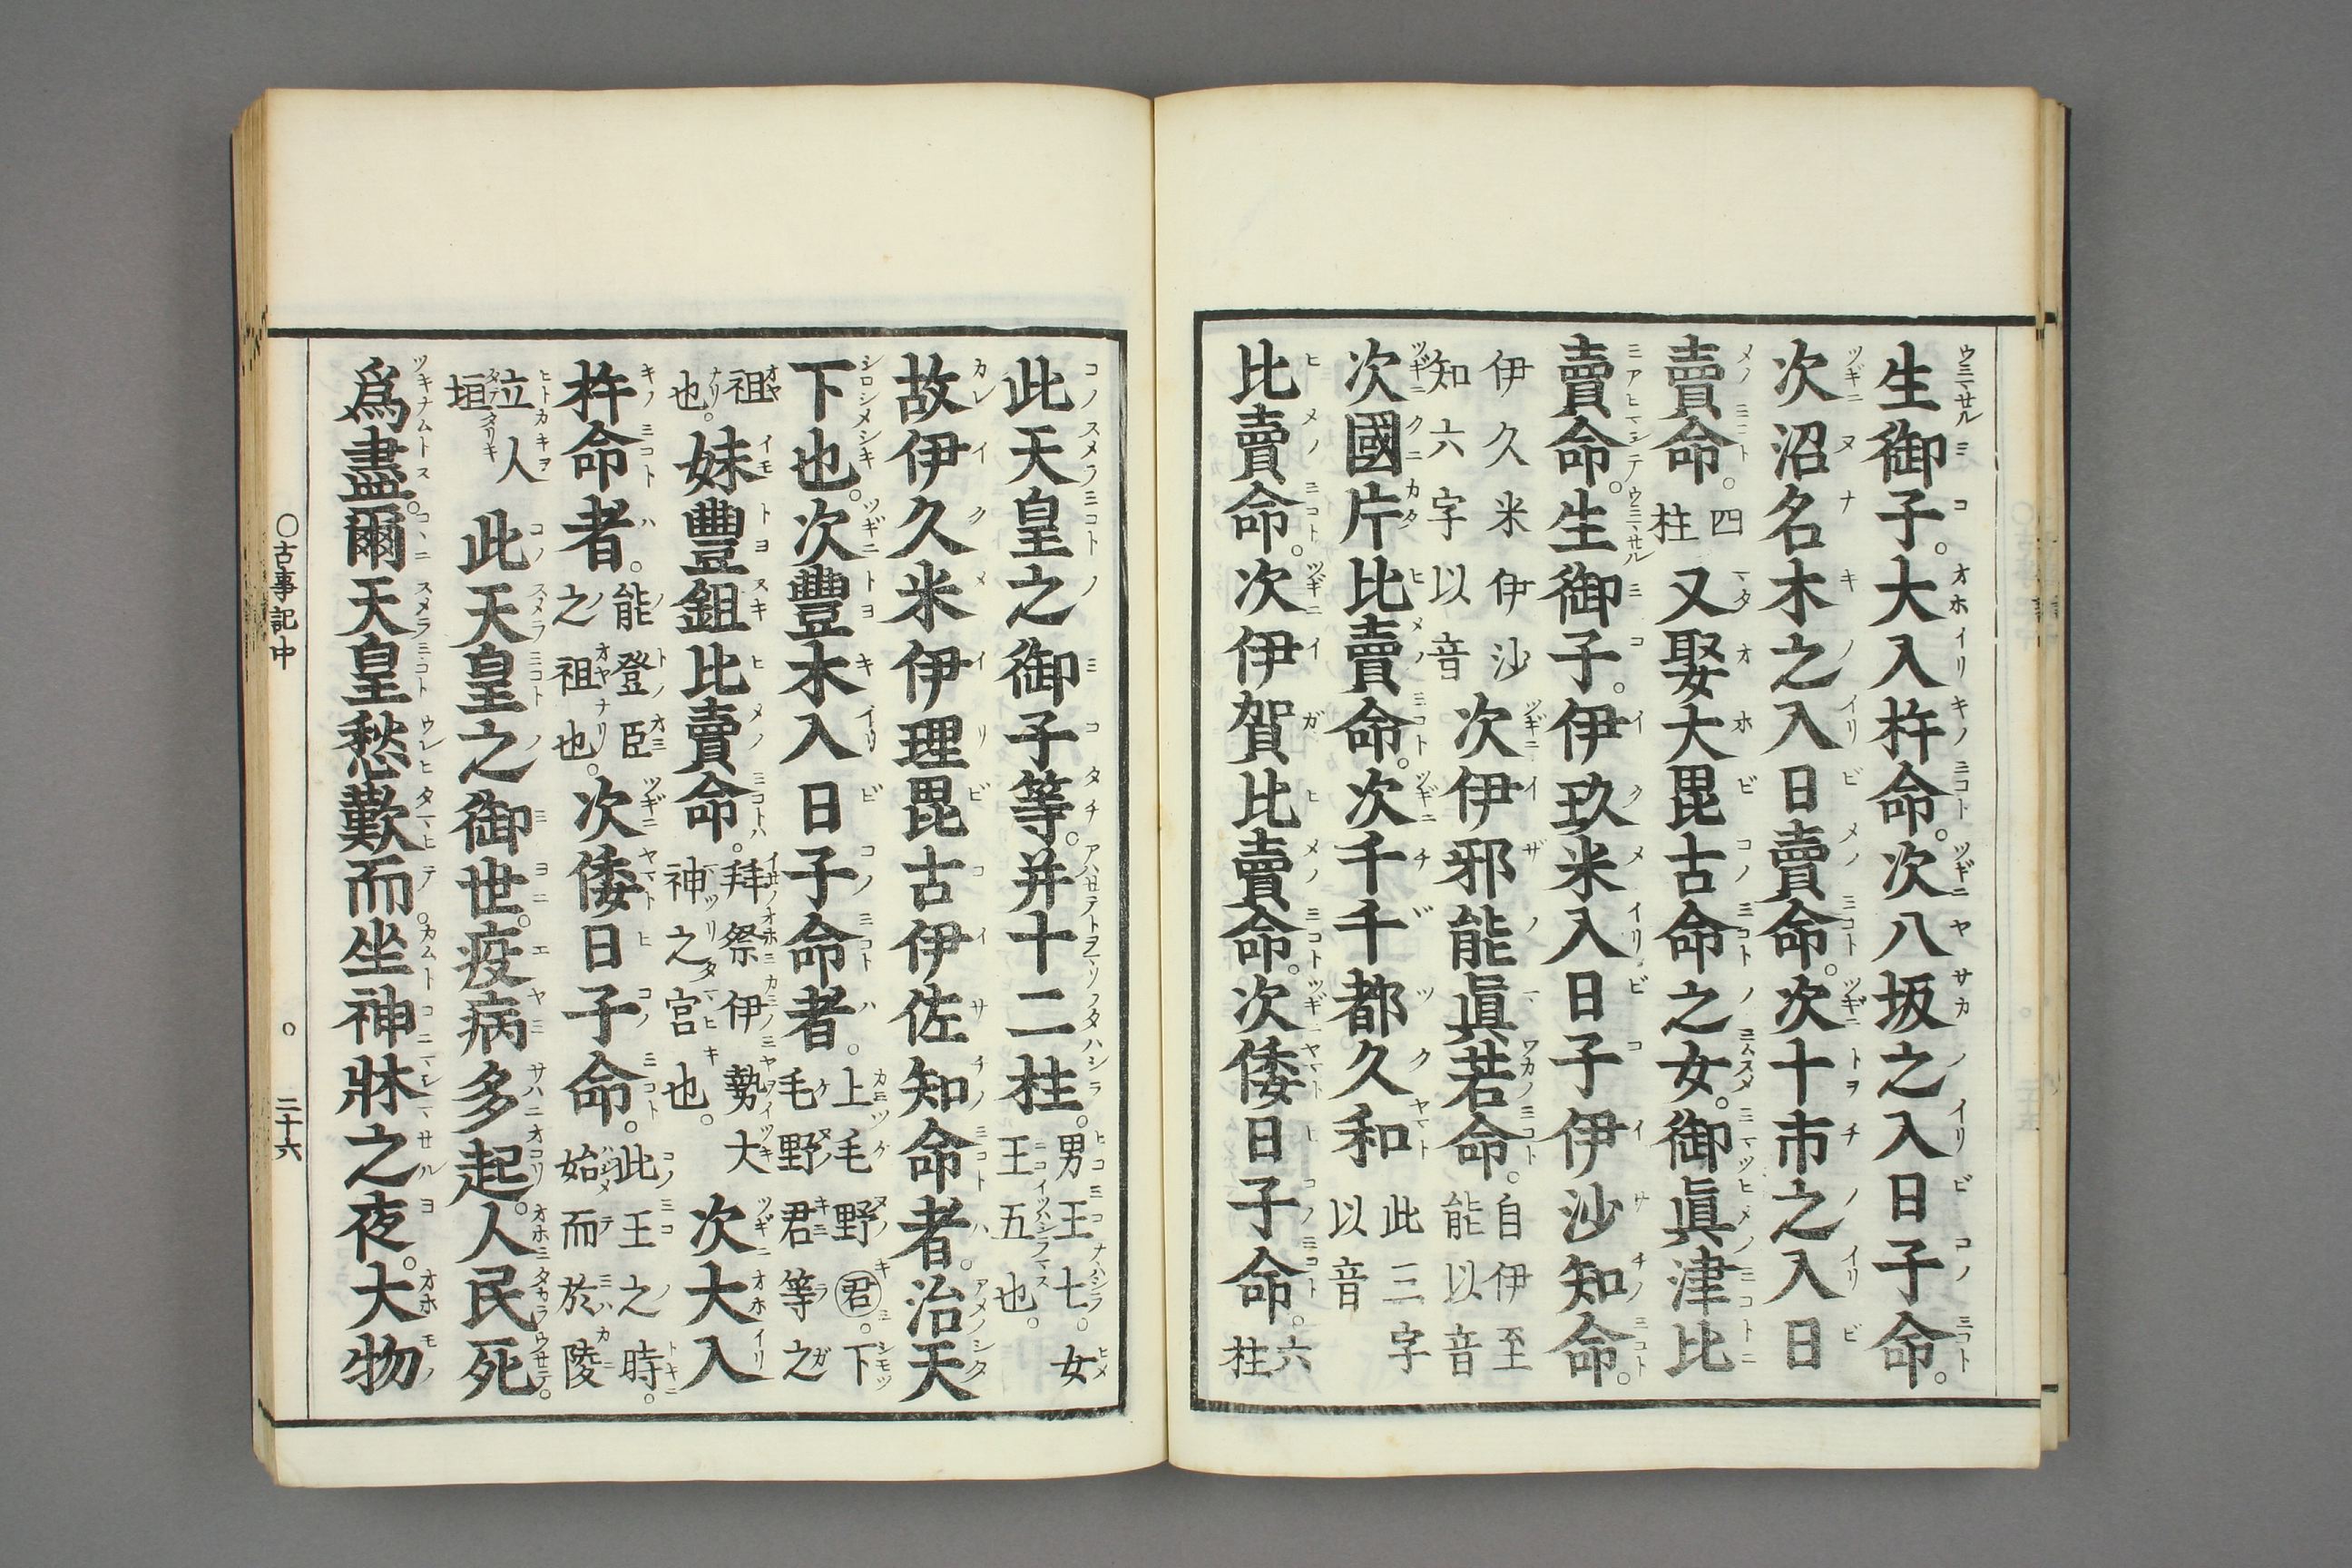 生御子。大入杵命。次八坂之入日子命。
次沼名木之入日賣命。次十市之入日
賣命。四柱又娶大毘古命之女。御眞津比
賣命。生御子。伊玖米入日子伊沙知命。
伊久米伊沙知六字以音次伊邪能眞若命。自伊至能以音
次國片比賣命。次千千都久和此三字以音
比賣命。次伊賀比賣命。次倭日子命。六柱
此天皇之御子等。并十二柱。男王七。女王五也。
故伊久米伊理毘古伊佐知命者。治天
下也。次豐木入日子命者。上毛野君。下毛野君等之
祖也。妹豐鉏比賣命。拜祭伊勢大神之宮也。次大入
杵命者。能登臣之祖也。次倭日子命。此王之時。始而於陵
立人垣此天皇之御世。疫病多起。人民死
爲盡。爾天皇愁歎而。坐神牀之夜。大物
○古事記中 ○ 二十六